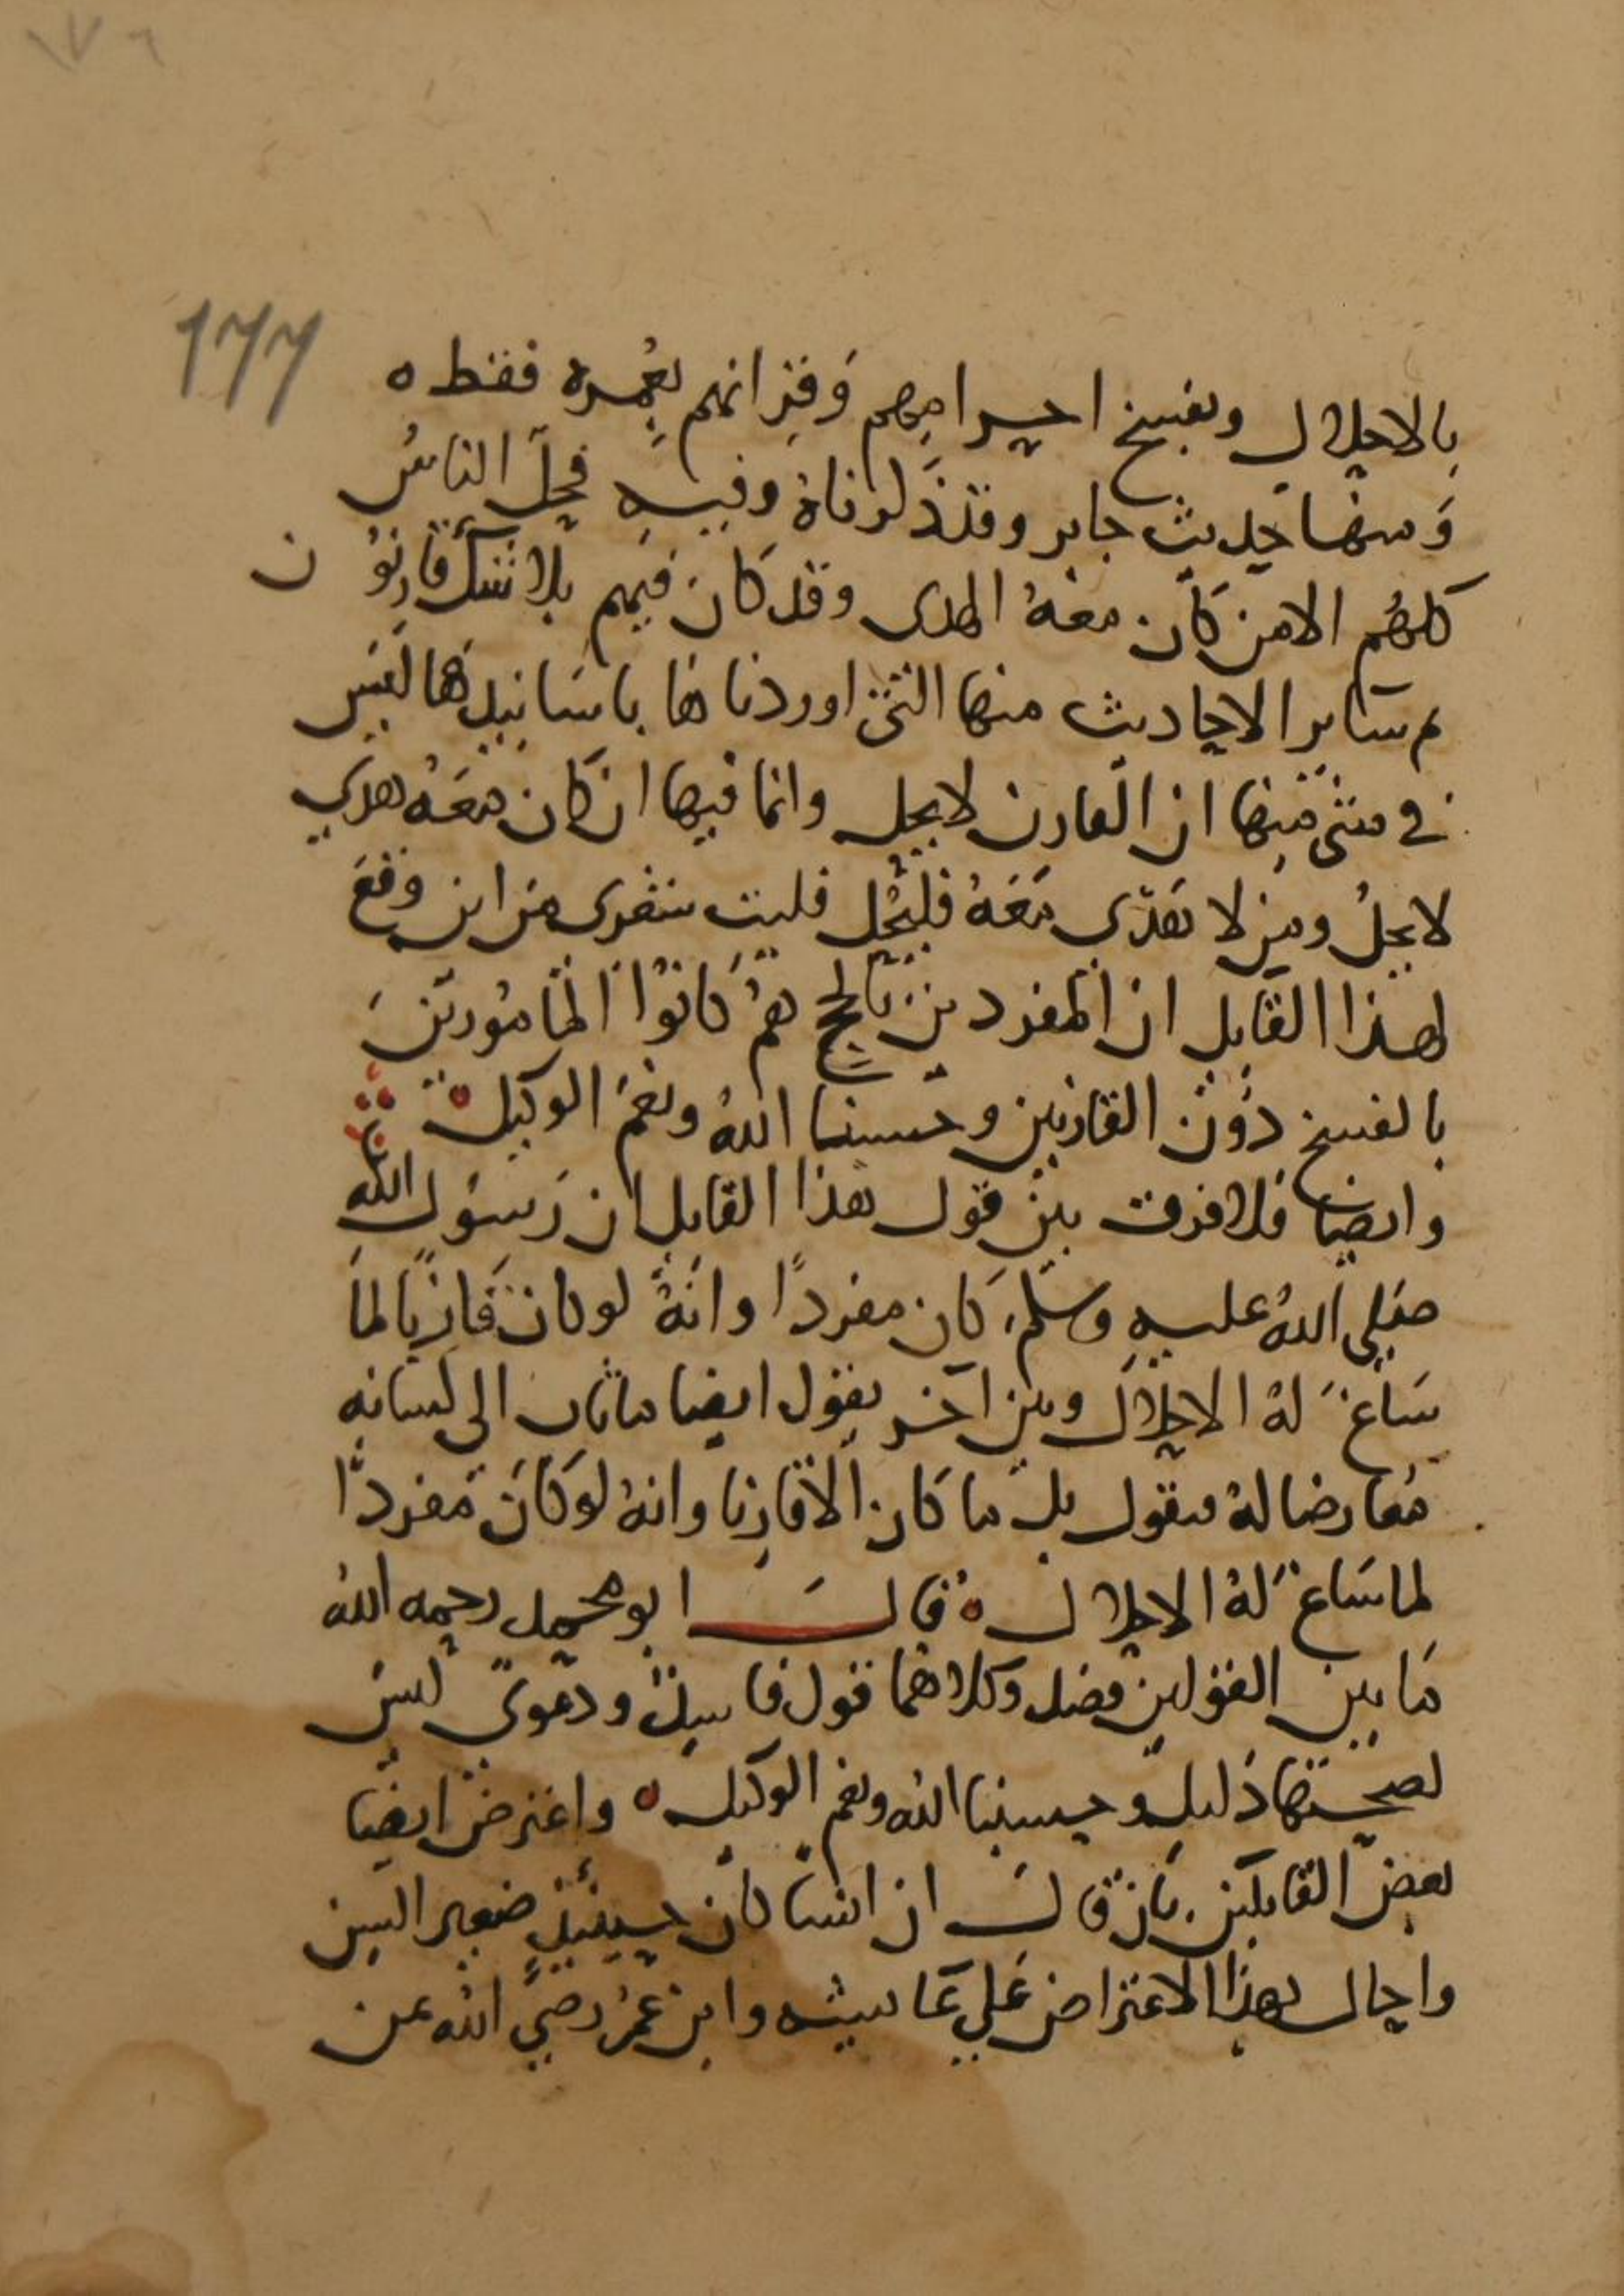 ١٧٦
177
بالاحلال وبفسخ احرامهم وَقِرانهم بعُمرهِ فقط ه
وَمنها حديث جابر وقد ذكرناهُ وفيهِ فحلّ الناسُ
كلهُم الا من كان معهُ الهدى وقد كان فيهم بلا شك قارنوُن
ثم سَاير الاحاديث منها التى اوردناها باسَانيدها ليسَ
فى شى منها ان القارن لا يحل وانما فيها ان كان معَهُ هدي
لا يحلُ ومن لا هَدي مَعَهُ فليحُل فليت شعرى من اين وقعَ
لهذا القايل ان المفردين بالحج همُ كانوُا المامُورينَ
بالفسخ دوُن القارنين وحسبنا اللهُ ونعمَ الوكيل ه
وايضا فلا فرق بين قول هذا القايل ان رَسوُل الله
صَلى اللهُ عليهِ وسلم كان مفردًا وانهُ لو كان قارنًا لما
سَاغَ لهُ الاحلال وبين آخر يقول ايضا ماثاب الى لسانه
مُعارضا لهُ فيقول بل ما كان الا قارِنا وانهُ لو كانَ مُفردًا
لما سَاغَ لهُ الاحلال ه قالَ ابو محمد رحمه اللهُ
مَا بين القولين فصل وكلاهُما قول فاسِدٌ ودعوىً ليسَ
لصحتها دَليل وحسبنا الله ونعم الوكيل ه واعترض ايضًا
بعضُ القايلين بان قالَ ان انسًا كان حينئيذٍ صَغير السِن
واحال بهذا الاعتراض عَلي عَاسيشه وابن عُمرَ رضيَ الله عن